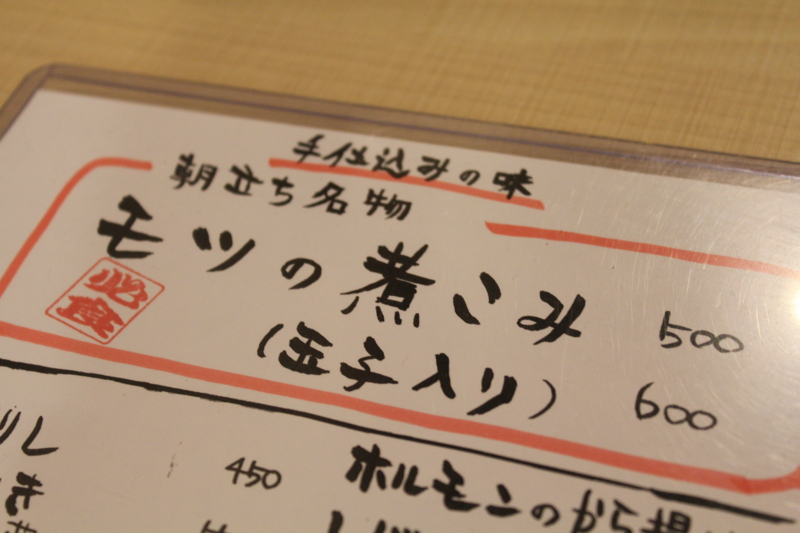 手仕込みの味
朝立ち名物
モツの煮こみ 500
必食
(玉子入り) 600
450
ホルモンのから揚